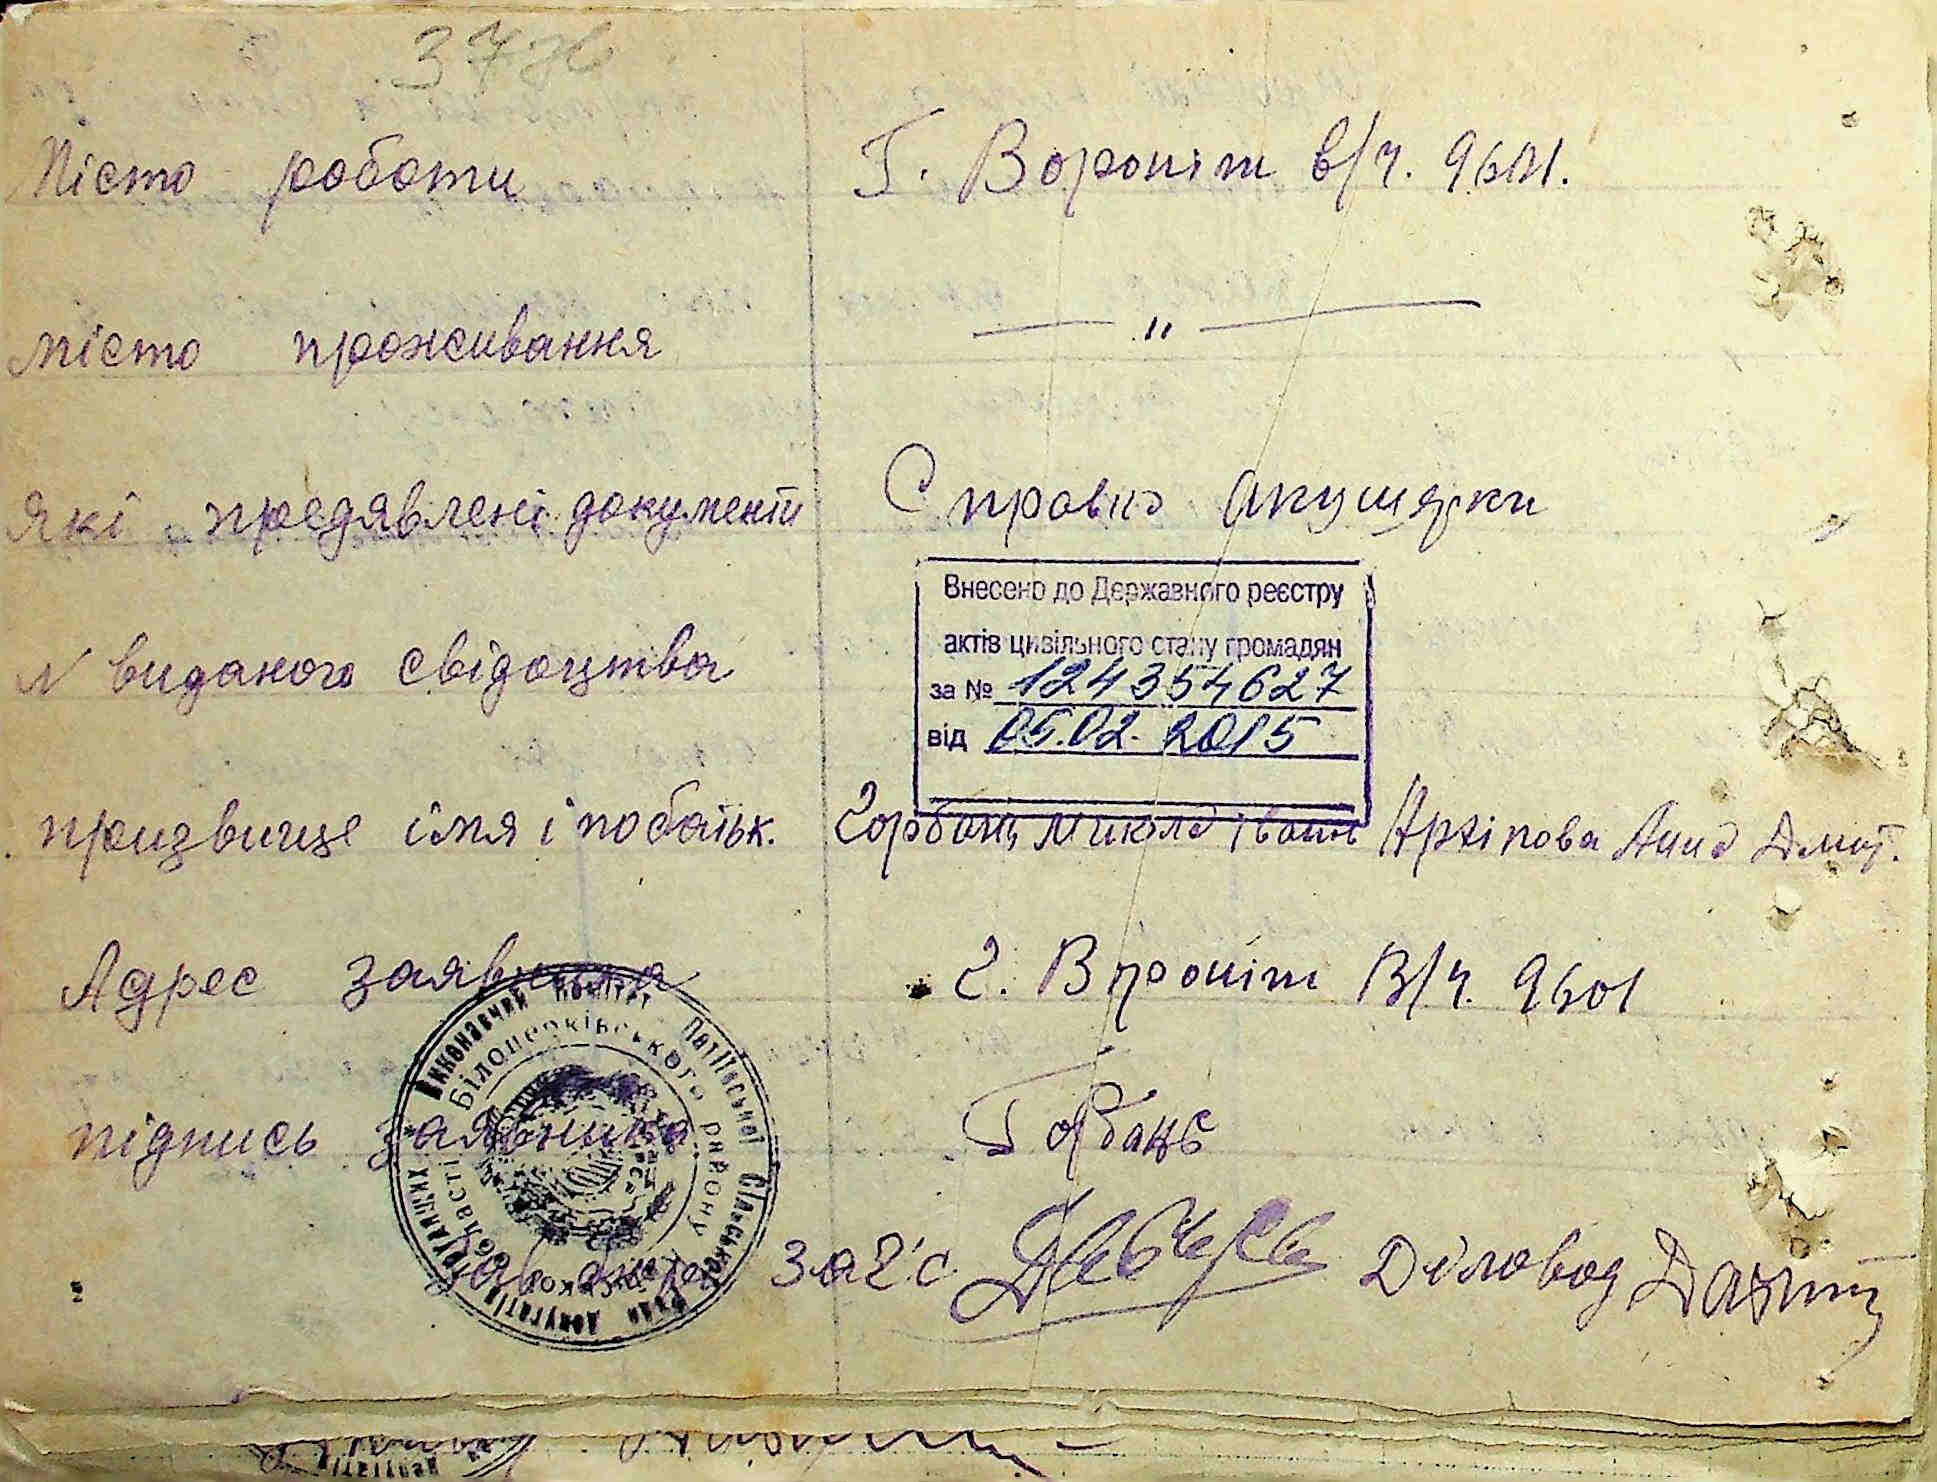 37
Місто роботи Г. Вороніж в/ч. 9601.
місто проживання — " —
Які предявлені документи Справка акушерки
Внесено до Державного реєстру
актів цивільного стану громадян
за № 124354627
від 05.02.2015
N виданого свідоцтва
призвище імя і побатьк. Горбань Микола Іван Архіпова Анна Дмит.
Адрес заявника г. Вороніж В/ч. 9601
підпись заявника Горбань
Виконавчий комітет Сільської Ради депутатів трудящих
Білоцерківського району Київської області
Зав бюро загс Діловод